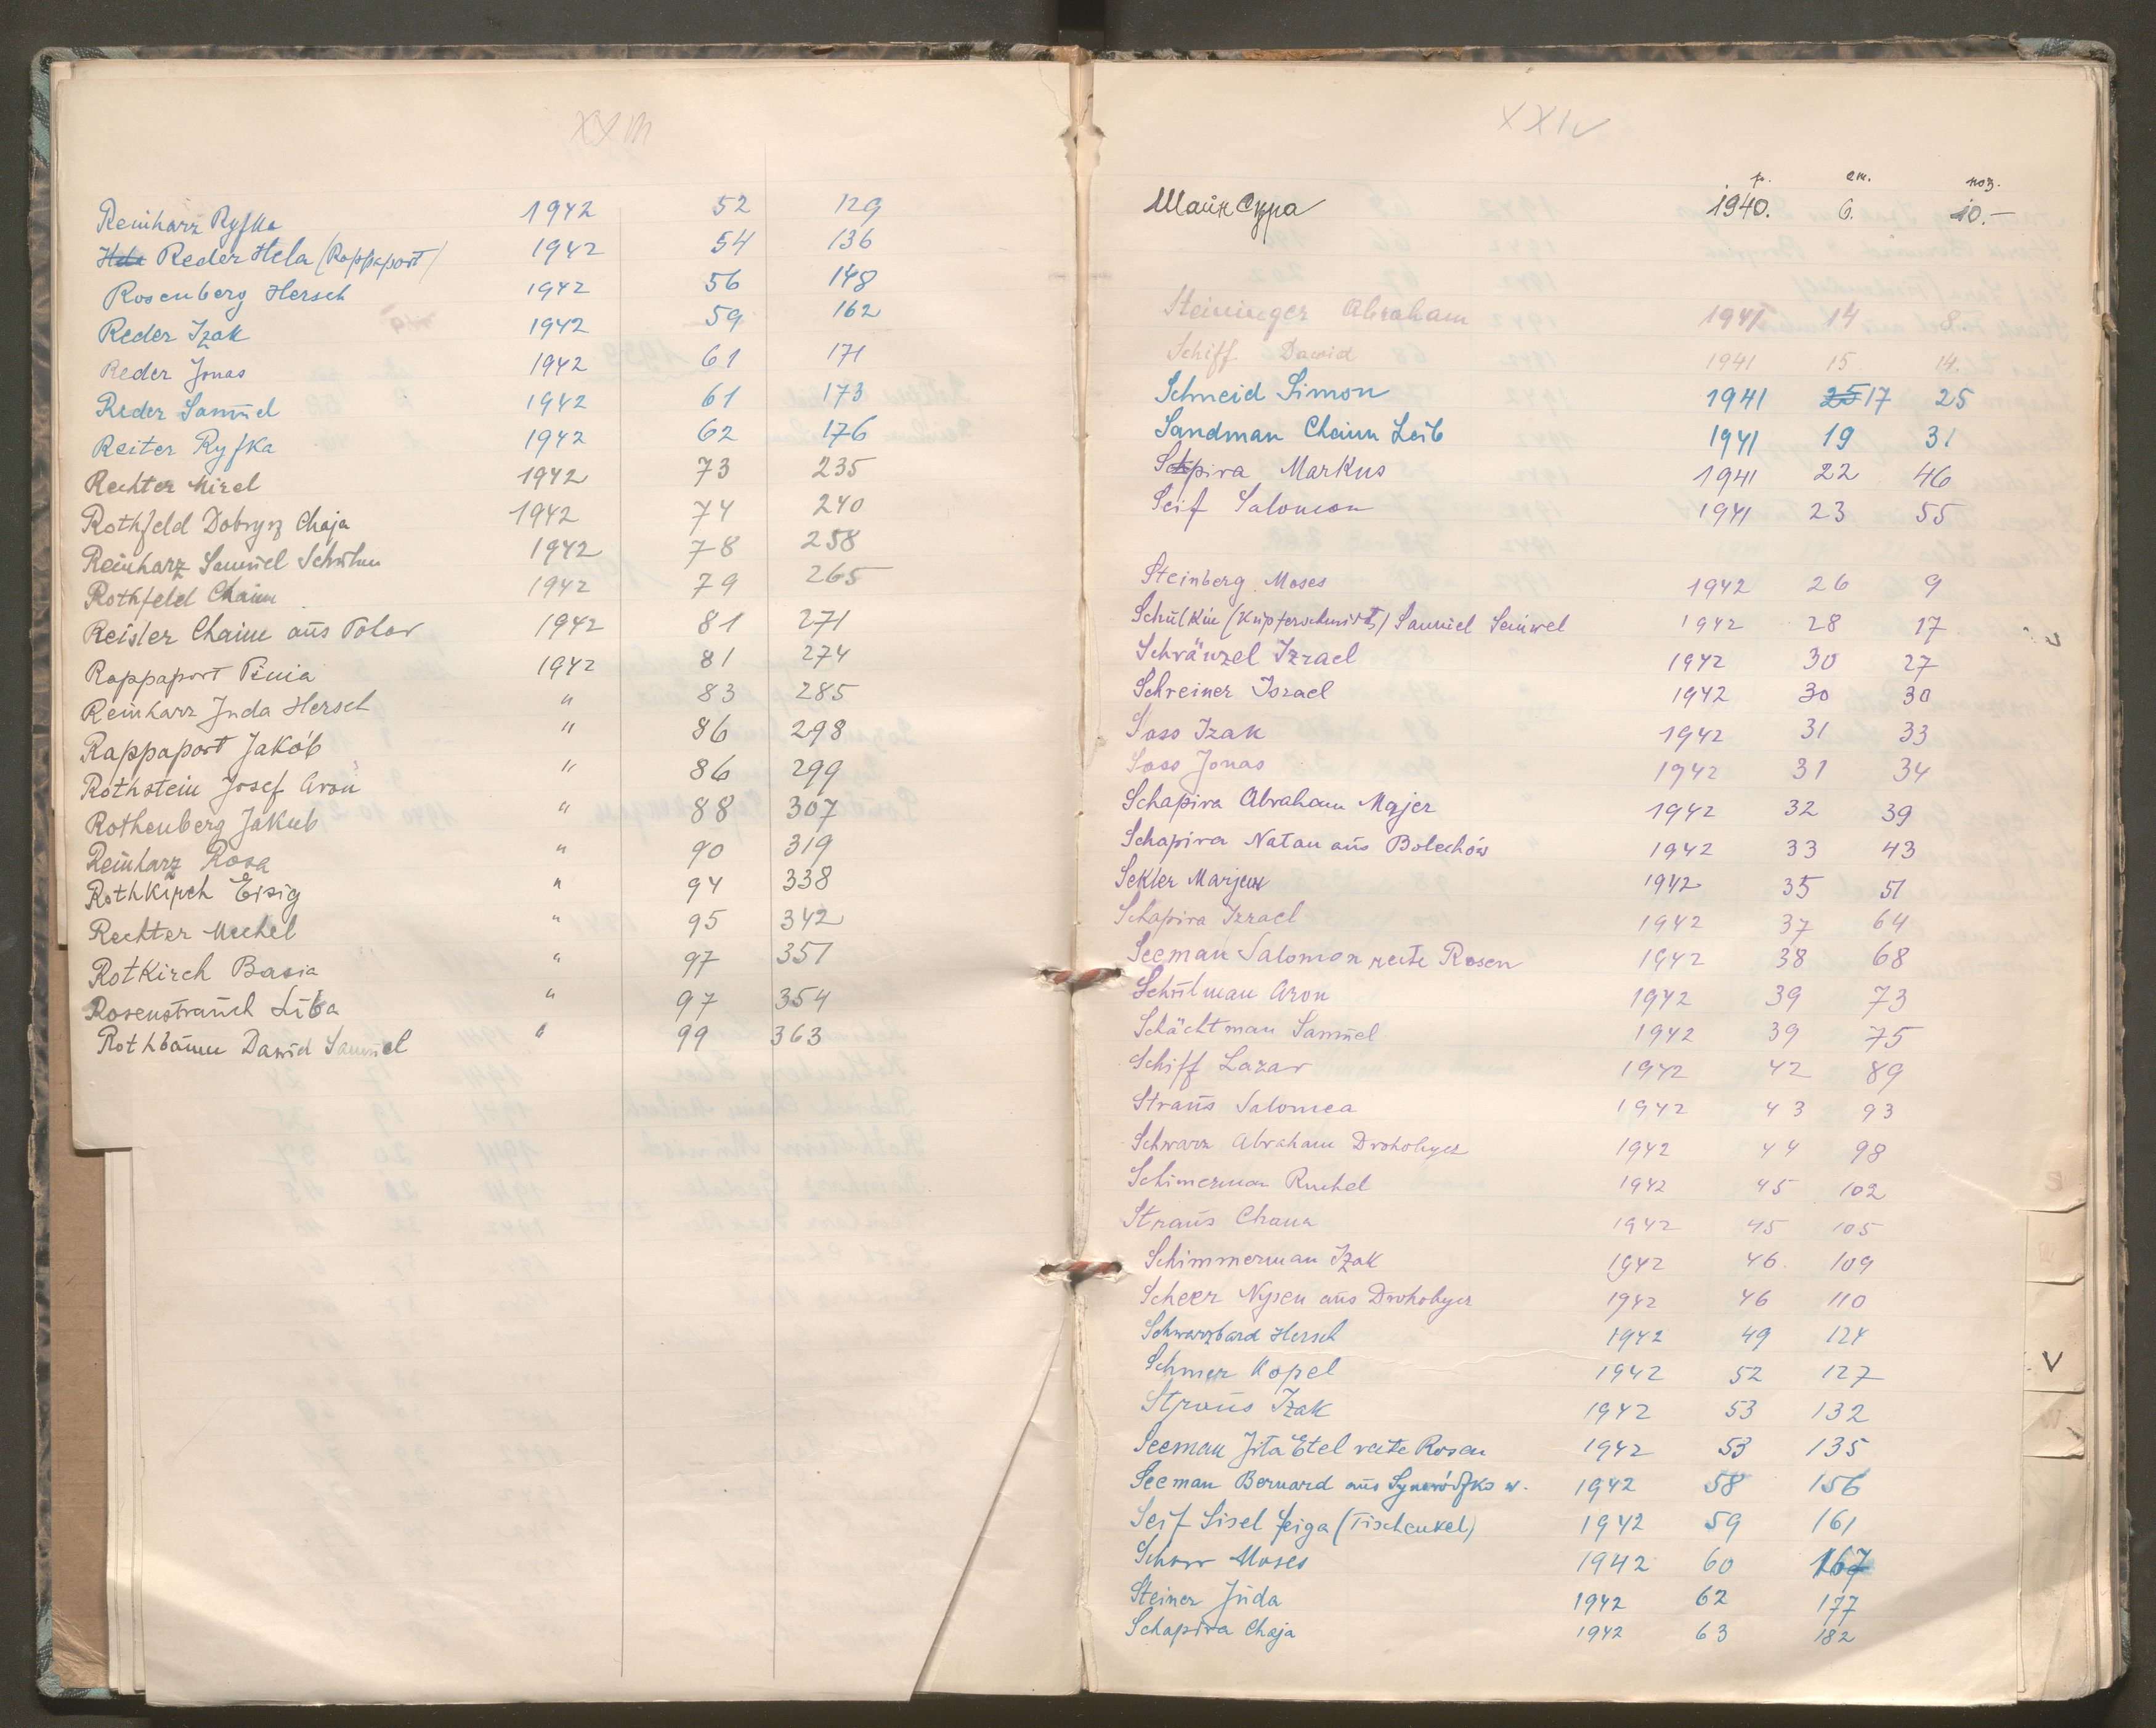 XXIII
Reinharz Ryfka 1942 52 129
Hela Reder Hela (Rappaport) 1942 54 136
Rosenberg Hersch 1942 56 148
Reder Izak 1942 59 162
Reder Jonas 1942 61 171
Reder Samuel 1942 61 173
Reiter Ryfka 1942 62 176
Rechter Mirel 1942 73 235
Rothfeld Dobrysz Chaja 1942 74 240
Reinharz Samuel 1942 78 258
Rothfeld Chaim 1942 79 265
Reisler Chaim aus 1942 81 271
Rappaport Pinia 1942 81 274
Reinharz Juda Hersch " 83 285
Rappaport Jakób " 86 298
Rothstein Josef Aron " 86 299
Rothenberg Jakub " 88 307
Reinharz Rosa " 90 319
Rothkirch Eisig " 94 338
Rechter Mechel " 95 342
Rotkirch Basia " 97 351
Rosenstrauch Liba " 97 354
Rothbaum Dawid Samuel " 99 363
XXIV
р. ст. поз.
Шайн Сура 1940. 6. 10.-
Steininger Abraham 1941 14 8.
Schiff Dawid 1941 15 14.
Schneid Simon 1941 25 17 25
Sandman Chaim Leib 1941 19 31
Schpira Markus 1941 22 46
Seif Salomon 1941 23 55
Steinberg Moses 1942 26 9
Schulkin (Kupferschmidt) Samuel Seinwel 1942 28 17
Schränzel Izrael 1942 30 27
Schreiner Israel 1942 30 30
Soss Izak 1942 31 33
Soss Jonas 1942 31 34
Schapira Abraham Majer 1942 32 39
Schapira Natan aus Bolechów 1942 33 43
Sekler Marjem 1942 35 51
Schapira Izrael 1942 37 64
Seeman Salomon recte Rosen 1942 38 68
Schulman Aron 1942 39 73
Schächtman Samuel 1942 39 75
Schiff Lazar 1942 42 89
Straus Salomea 1942 43 93
Schwarz Abraham Drohobycz 1942 44 98
Schimerman Ruchel 1942 45 102
Straus Chana 1942 45 105
Schimmerman Izak 1942 46 109
Scheer Nysen aus Drohobycz 1942 46 110
Schwarzbard Hersch 1942 49 124
Schmer Kopel 1942 52 127
Straus Izak 1942 53 132
Seeman Jita Etel recte Rosen 1942 53 135
Seeman Bernard aus Synowódzko w. 1942 58 156
Seif Sisel Feiga (Tischenkel) 1942 59 161
Schorr Moses 1942 60 167
Steiner Juda 1942 62 177
Schapira Chaja 1942 63 182
V